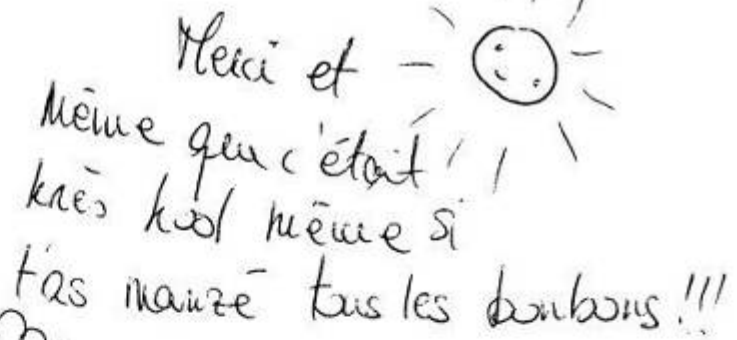 Merci et
même que c'était
krès kool même si
t'as manzé tous les bonbons!!!